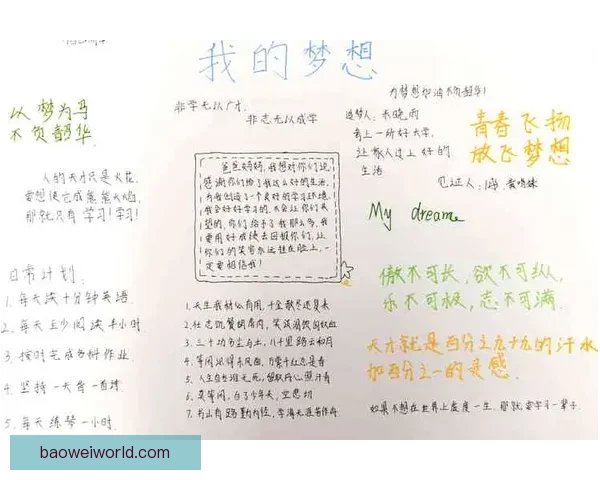 我的梦想
以梦为马
不负韶华
非学无以广才
非志无以成学
为梦想加油不负韶华!
追梦人:
考上一所好大学,
让家人过上好的
生活
见证人:
青春飞扬
放飞梦想
人的天才只是火花,
要想使它成熊熊火焰,
那就只有学习!学习!
爸爸妈妈,我想对你们说,
感谢你们给了我这么好的生活,
为我创造了一个良好的学习环境.
我会好好学习的,不会让你们失
望的,你们给予了我那么多,我
要用好成绩去回报你们,让
你们的笑容永远挂在脸上,一
定要相信我!
My dream
日常计划.
1.每天读十分钟英语.
2.每天至少阅读半小时.
3.按时完成各科作业.
4.坚持一天背一首诗.
5.每天练琴一小时.
1.天生我材必有用,千金散尽还复来
2.壮志饥餐胡虏肉,笑谈渴饮匈奴血
3.三十功名尘与土,八千里路云和月
4.等闲识得东风面,万紫千红总是春
5.人生自古谁无死,留取丹心照汗青
6.莫等闲,白了少年头,空悲切
7.书山有路勤为径,学海无涯苦作舟
傲不可长,欲不可纵,
乐不可极,志不可满.
天才就是百分之九十九的汗水
加百分之一的灵感.
如果不想在世界上虚度一生,那就要学习一辈子.
baoweiworld.com